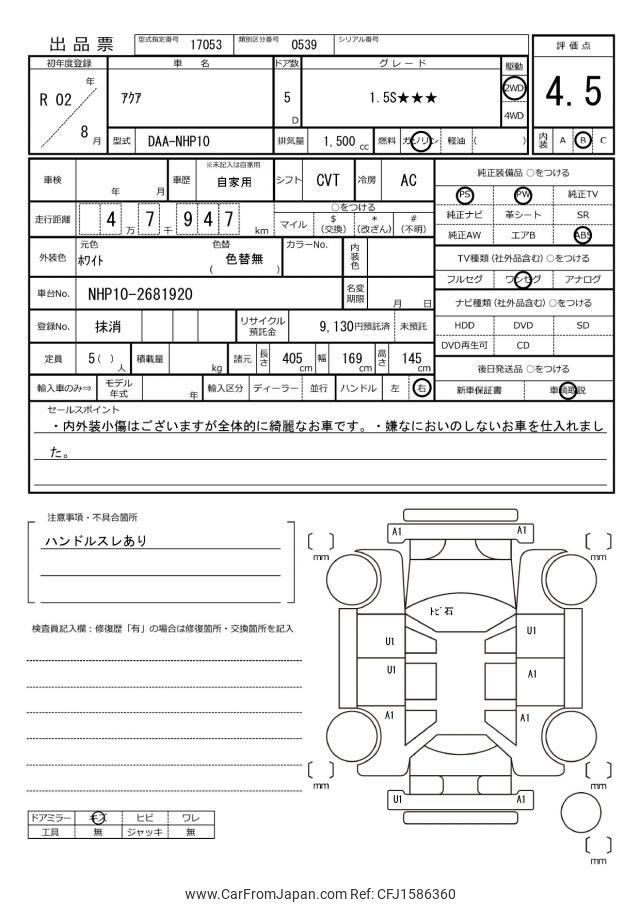 出品票
型式指定番号 17053 類別区分番号 0539 シリアル番号
評価点
4.5
内装 A B C
初年度登録 車名 ドア数 グレード 駆動
R 02 年 8 月
アクア
5 D
1.5S★★★
2WD
4WD
型式 DAA-NHP10 排気量 1,500 cc 燃料 ガソリン 軽油 ( )
車検 年 月 車歴 ※未記入は自家用 自家用 シフト CVT 冷房 AC
走行距離 4 万 7 千 9 4 7 km
○をつける
マイル $(交換) *(改ざん) #(不明)
外装色 元色 ホワイト 色替 ( 色替無 ) カラーNo. 内装色
車台No. NHP10-2681920 名変期限 月 日
登録No. 抹消 リサイクル預託金 9,130円預託済 未預託
定員 5( )人 積載量 kg 諸元 長さ 405 cm 幅 169 cm 高さ 145 cm
輸入車のみ⇒ モデル年式 年 輸入区分 ディーラー 並行 ハンドル 左 右
純正装備品 ○をつける
PS PW 純正TV
純正ナビ 革シート SR
純正AW エアB ABS
TV種類(社外品含む)○をつける
フルセグ ワンセグ アナログ
ナビ種類(社外品含む)○をつける
HDD DVD SD
DVD再生可 CD
後日発送品 ○をつける
新車保証書 車輌取説
セールスポイント
・内外装小傷はございますが全体的に綺麗なお車です。・嫌なにおいのしないお車を仕入れまし
た。
注意事項・不具合箇所
ハンドルスレあり
検査員記入欄：修復歴「有」の場合は修復箇所・交換箇所を記入
ドアミラー キズ ヒビ ワレ
工具 無 ジャッキ 無
A1 A1
[ ] mm
[ ] mm
トビ石
U1 U1
U1 A1
A1 A1
[ ] mm
[ ] mm
U1 A1
[ ] mm
www.CarFromJapan.com Ref: CFJ1586360